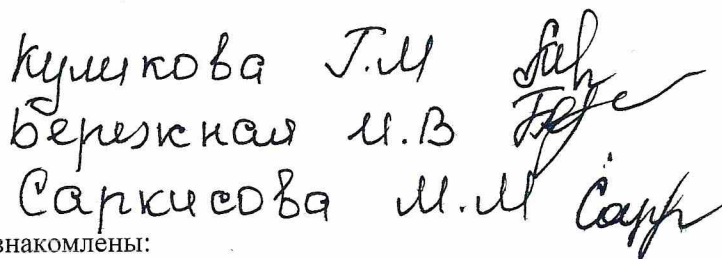 Куликова Г.М
Бережная И.В
Саркисова М.М
знакомлены: